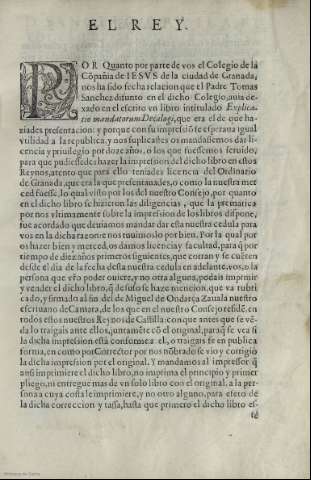 EL REY.
POR Quanto por parte de vos el Colegio de la
Cõpañia de IESVS de la ciudad de Granada,
nos ha sido fecha relacion que el Padre Tomas
Sanchez difunto en el dicho Colegio, auia de-
xado en el escrito vn libro intitulado Explica-
tio mandatorum Decalogi, que era el de que ha-
ziades presentacion: y porque con su impresiõ se esperaua igual
vtilidad a la republica, y nos suplicastes os mandassemos dar li-
cencia y priuilegio por doze años, o los que fuessemos seruido,
para que pudiessedes hazer la impresion del dicho libro en estos
Reynos, atento que para ello teniades licencia del Ordinario
de Granada, que era la que presentauades, o como la nuestra mer
ced fuesse, lo qual visto por los del nuestro Consejo, por quanto
en el dicho libro se hizieron las diligencias, que la prematica
por nos vltimamente sobre la impresion de los libros dispone,
fue acordado que deuiamos mandar dar esta nuestra cedula para
vos en la dicha razon: e nos tuuimoslo por bien. Por la qual por
os hazer bien y merced, os damos licencia y facultad, para q̃ por
tiempo de diez años primeros siguientes, que corran y se cuenten
desde el dia de la fecha desta nuestra cedula en adelante, vos, o la
persona que vřo poder ouiere, y no otra alguna, podais imprimir
y vender el dicho libro, q̃ de suso se haze mencion, que va rubri
cado, y firmado al fin del de Miguel de Ondarça Zauala nuestro
escriuano de Camara, de los que en el nuestro Consejo residẽ. en
todos estos nuestros Reynos de Castilla: con que antes que se vẽ-
da lo traigais ante ellos, juntamẽte cõ el original, para q̃ se vea si
la dicha impresion està conforme a el, o traigais fe en publica
forma, en como por Corrector por nos nõbrado se vio y corrigio
la dicha impresion por el original. Y mandamos al impressor q̃
ansi imprimiere el dicho libro, no imprima el principio y primer
pliego, ni entregue mas de vn solo libro con el original, a la per
sona a cuya costa le imprimiere, y no otro alguno, para efeto de
la dicha correccion y tassa, hasta que primero el dicho libro es-
tè